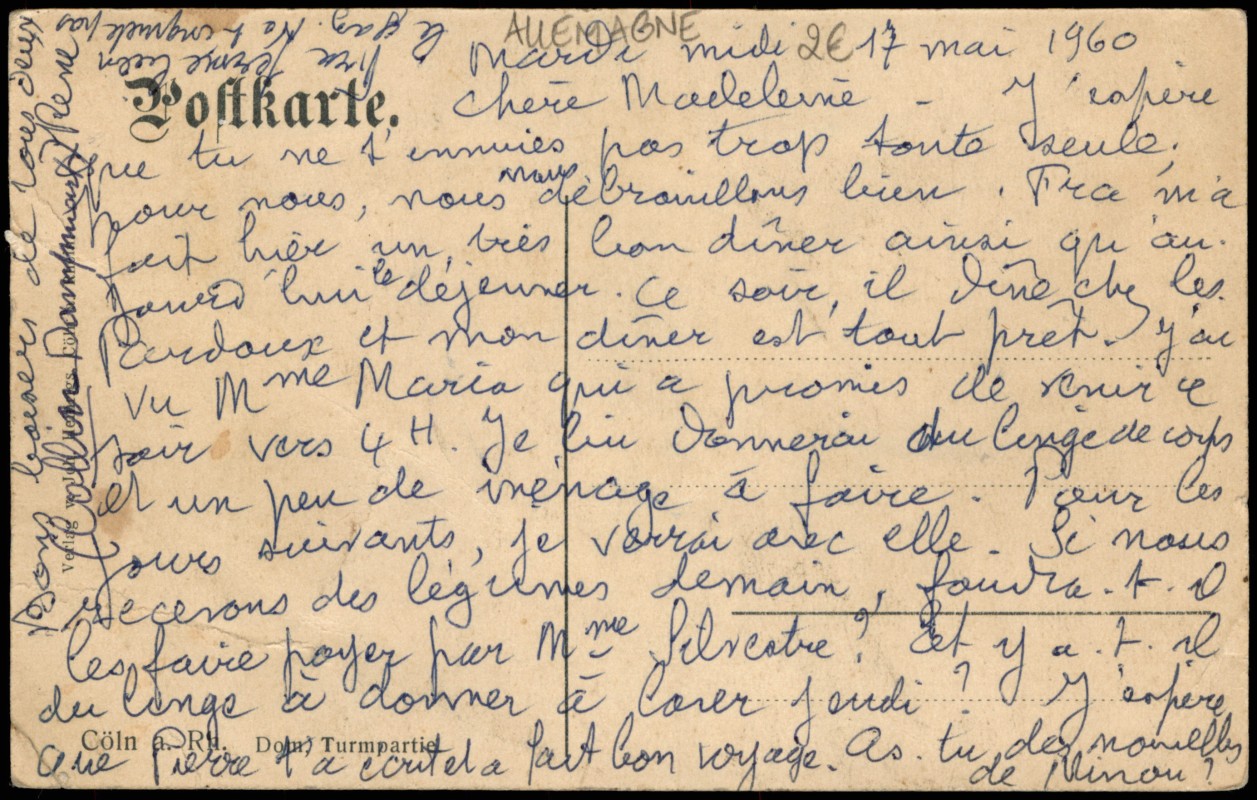 ALLEMAGNE
2€
Mardi midi 17 mai 1960
Postkarte.
Chère Madeleine - J'espère
que tu ne t'ennuies pas trop toute seule.
pour nous, nous nous débrouillons bien. Fra m'a
fait hier un très bon dîner ainsi qu'au-
jourd'hui le déjeuner. Ce soir, il dîne chez les
Pardoux et mon dîner est tout prêt. J'ai
vu Mme Maria qui a promis de venir ce
soir vers 4 H. Je lui donnerai du linge de corps
et un peu de ménage à faire. Pour les
jours suivants, je verrai avec elle. Si nous
recevons des légumes demain, faudra-t-il
les faire payer par Mme Silvestre? Et y a-t-il
du linge à donner à laver jeudi? J'espère
que Pierre t'a écrit et a fait bon voyage. As-tu des nouvelles
de Minou?
Cöln a. Rh. Dom, Turmpartie
Bons baisers de tous deux.
Verlag von
Fra ferme bien
le gaz. Ne t'inquiète pas